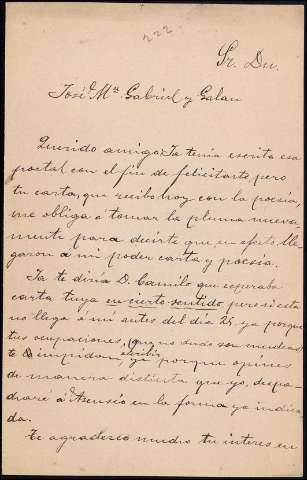 222
Sr. Dn.
José Mª Gabriel y Galan
Querido amigo: Ya tenía escrita esa
postal con el fin de felicitarte, pero
tu carta, que recibo hoy con la poesía,
me obliga a tomar la pluma nueva
mente para decirte que en efecto lle
garon a mi poder carta y poesía.
Ya te diría D. Camilo que esperaba
carta tuya en cierto sentido, pero si esta
no llega á mi antes del día 25 ya porque
tus ocupaciones, (que no dudo son muchas)
te lo impidan, escribir, ya porque opines
de manera distinta que yo, despa-
charé á Asensio en la forma ya indica
da.
Te agradezco mucho tu interes en